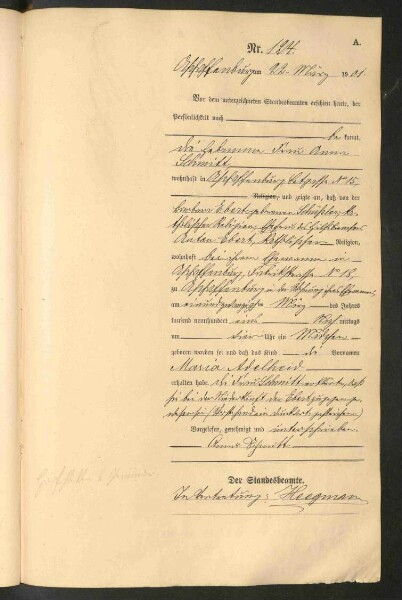 A.
Nr. 124.
Aschaffenburg am 22. März 1901.
Vor dem unterzeichneten Standesbeamten erschien heute, der
Persönlichkeit nach
be kannt,
die Hebamme Frau Anna
Schmitt
wohnhaft in Aschaffenburg N° 15,
Religion, und zeigte an, daß von der
Barbara Ebert, geborenen
Religion, Ehefrau des
Ebert, Religion,
wohnhaft bei ihrem Ehemanne in
Aschaffenburg, N° 18,
zu Aschaffenburg in der Wohnung ihres Ehemannes,
am März des Jahres
tausend neunhundert eins Nach mittags
um vier Uhr ein Mädchen
geboren worden sei und daß das Kind die Vornamen
Maria Adelheid
erhalten habe. die Frau Schmitt erklärte, daß
sie bei der Niederkunft der Ebert zugegen ge-
wesen sei.
Vorgelesen, genehmigt und unterschrieben
Anna Schmitt
Der Standesbeamte.
In Vertretung: Heegmann